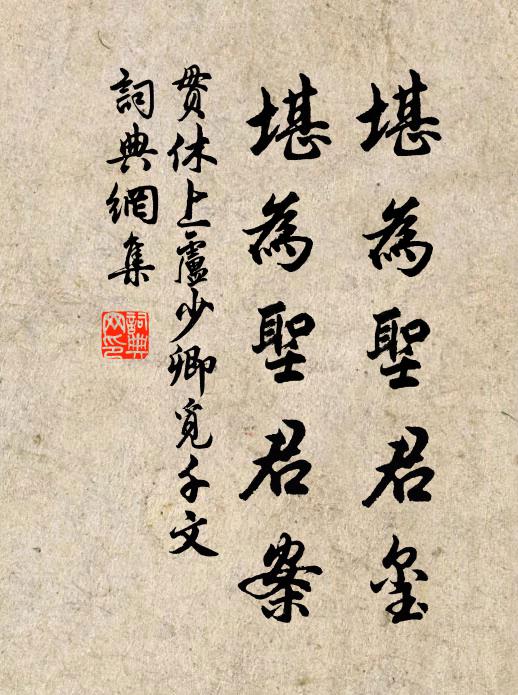 堪為聖君璽
堪為聖君案
贯休上盧少卿覓千文
詞典網集
詞典網印